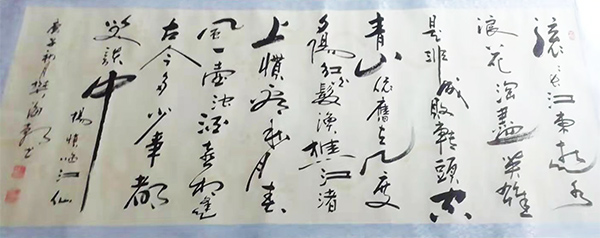 滚滚长江東逝水
浪花淘盡英雄
是非成敗轉頭空
青山依舊在几度
夕陽紅白髮漁樵江渚
上慣看秋月春
風一壺濁酒喜相逢
古今多少事都付
笑談中
楊慎臨江仙
庚子秋月